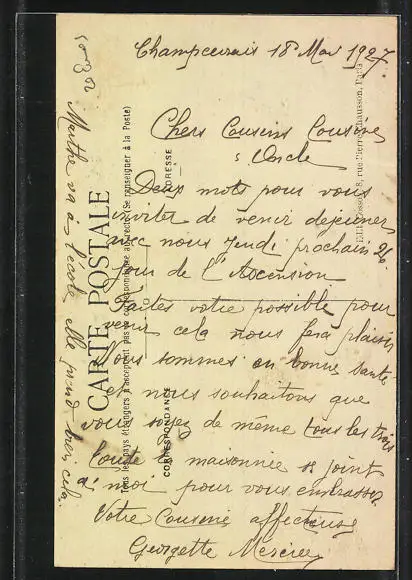 Champcevrais 18 Mai 1927.
Chers Cousins Cousine
s Oncle
Deux mots pour vous
inviter de venir dejeuner
avec nous Jeudi prochain 26
Jour de l'Ascension
Faites votre possible pour
venir cela nous fera plaisir
Nous sommes en bonne santé
et nous souhaitons que
vous soyez de même tous les trois
Toute la maisonnée se joint
à moi pour vous embrasser
Votre Cousine affectueuse
Georgette Mercier
Marthe va à l'école elle
CARTE POSTALE
Tous les pays étrangers n'acceptent pas la correspondance au recto (Se renseigner à la Poste)
CORRESPONDANCE
ADRESSE
8, rue Pierre Chausson, Paris